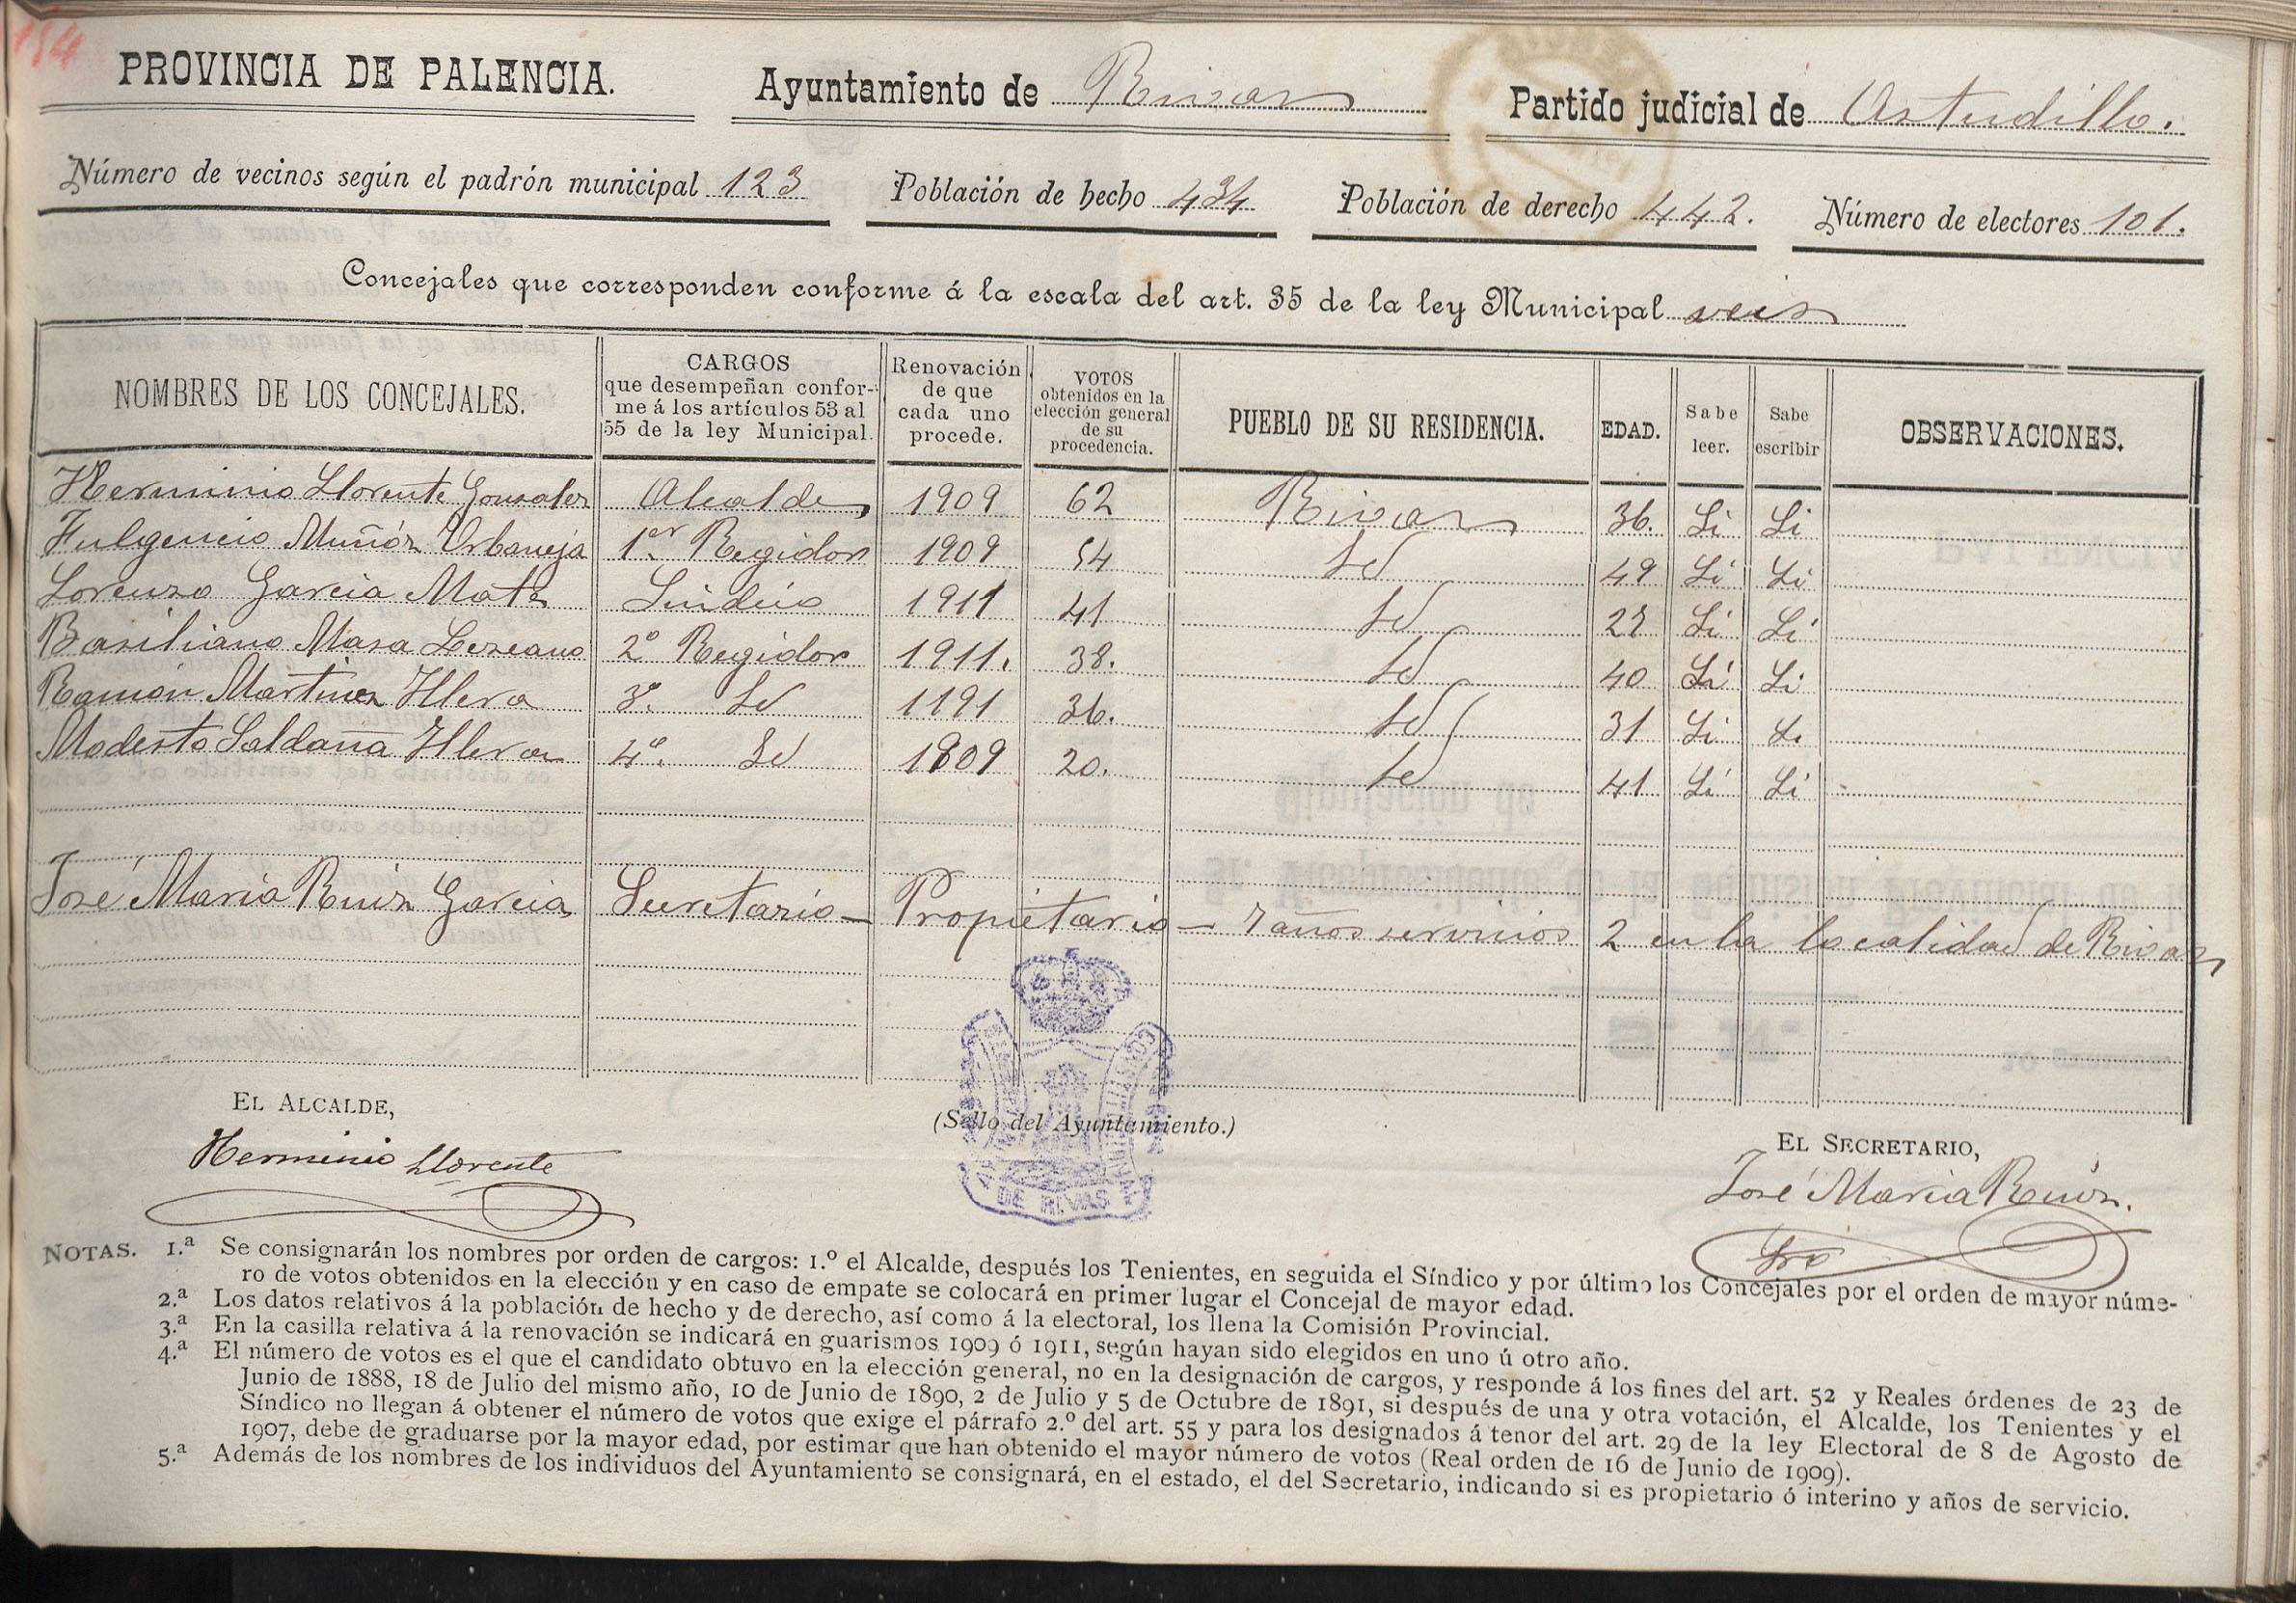 154
PROVINCIA DE PALENCIA. Ayuntamiento de Rivas Partido judicial de Astudillo.
Número de vecinos según el padrón municipal 123 Población de hecho 434 Población de derecho 442. Número de electores 101.
Concejales que corresponden conforme á la escala del art. 35 de la ley Municipal seis
NOMBRES DE LOS CONCEJALES. CARGOS que desempeñan conforme á los artículos 53 al 55 de la ley Municipal. Renovación de que cada uno procede. VOTOS obtenidos en la elección general de su procedencia. PUEBLO DE SU RESIDENCIA. EDAD. Sabe leer. Sabe escribir OBSERVACIONES.
Herminio Llorente Gonzalez Alcalde 1909 62 Rivas 36. Si Si
Fulgencio Muñóz Urbaneja 1er Regidor 1909 54 Id 49 Si Si
Lorenzo Garcia Mate Sindico 1911 41 Id 27 Si Si
Basiliano Masa Lezcano 2º Regidor 1911. 38. Id 40 Si Si
Ramón Martinez Illera 3º. Id 1191 36. Id 31 Si Si
Modesto Saldaña Illera 4º. Id 1909 20. Id 41 Si Si
José Maria Ruiz Garcia Secretario - Propietario - 7 años servicios 2 en la localidad de Rivas
EL ALCALDE,
(Sello del Ayuntamiento.)
EL SECRETARIO,
Herminio Llorente
José Maria Ruiz.
Srio
DE RIVAS
NOTAS. 1.ª Se consignarán los nombres por orden de cargos: 1.º el Alcalde, después los Tenientes, en seguida el Síndico y por último los Concejales por el orden de mayor núme-
ro de votos obtenidos en la elección y en caso de empate se colocará en primer lugar el Concejal de mayor edad.
2.ª Los datos relativos á la población de hecho y de derecho, así como á la electoral, los llena la Comisión Provincial.
3.ª En la casilla relativa á la renovación se indicará en guarismos 1909 ó 1911, según hayan sido elegidos en uno ú otro año.
4.ª El número de votos es el que el candidato obtuvo en la elección general, no en la designación de cargos, y responde á los fines del art. 52 y Reales órdenes de 23 de
Junio de 1888, 18 de Julio del mismo año, 10 de Junio de 1890, 2 de Julio y 5 de Octubre de 1891, si después de una y otra votación, el Alcalde, los Tenientes y el
Síndico no llegan á obtener el número de votos que exige el párrafo 2.º del art. 55 y para los designados á tenor del art. 29 de la ley Electoral de 8 de Agosto de
1907, debe de graduarse por la mayor edad, por estimar que han obtenido el mayor número de votos (Real orden de 16 de Junio de 1909).
5.ª Además de los nombres de los individuos del Ayuntamiento se consignará, en el estado, el del Secretario, indicando si es propietario ó interino y años de servicio.